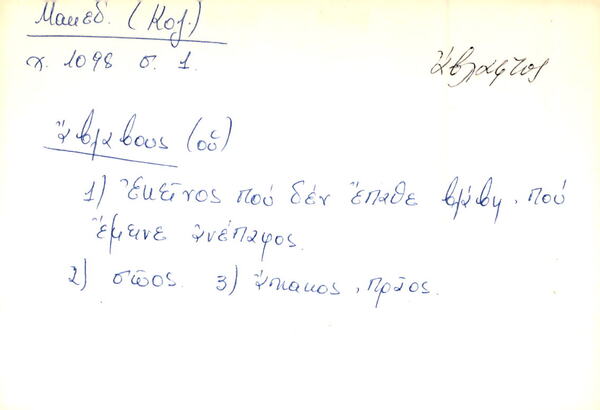 Μακεδ. (Κοζ.)
χ. 1098 σ. 1.
ἄβλαφτος
ἄβλαβους (οὑ)
1) Ἐκεῖνος πού δέν ἔπαθε βλάβη, πού
ἔμεινε ἀνέπαφος.
2) σῶος. 3) ἄκακος, πρᾶος.